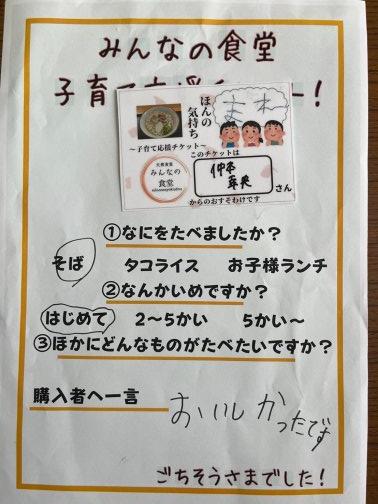 みんなの食堂
子育て
ー!
ほんの
気持ち
まれ
〜子育て応援チケット〜
みんなの
食堂
このチケットは
さん
からのおすそわけです
①なにをたべましたか?
そば タコライス お子様ランチ
②なんかいめですか?
はじめて 2〜5かい 5かい〜
③ほかにどんなものがたべたいですか?
購入者へ一言
おいしかったです
ごちそうさまでした!